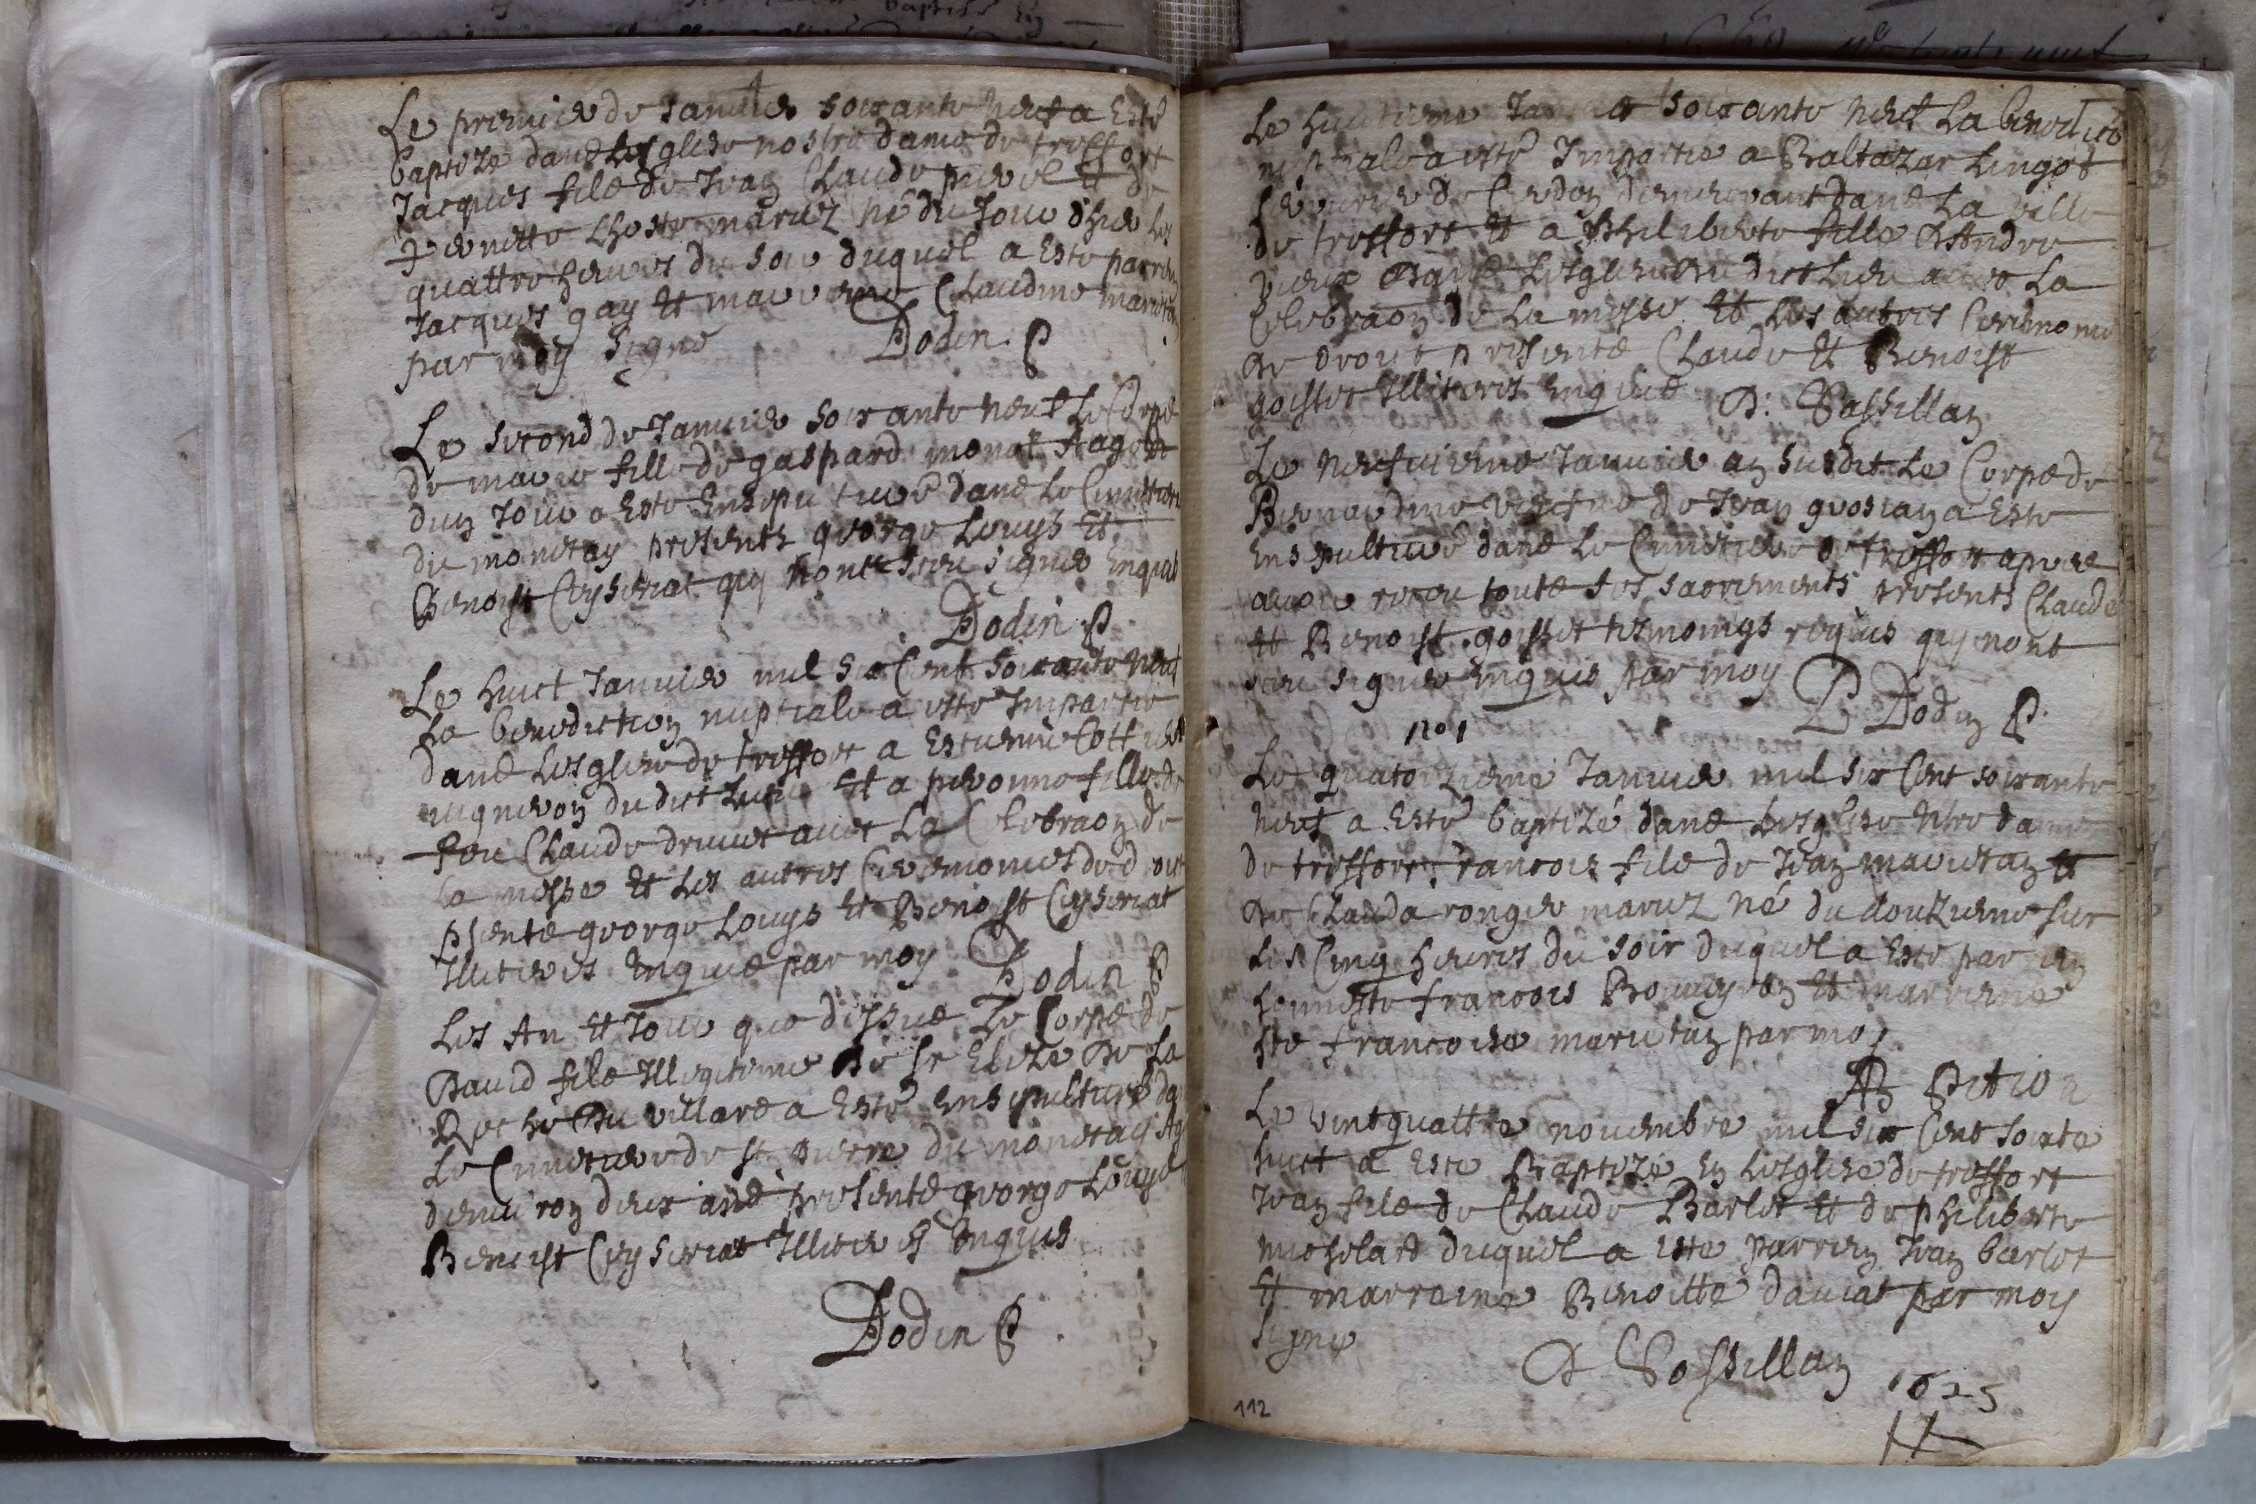 Le premier de Januier soixante neuf a Esté
baptizé dans Lesglise nostre dame de treffort
Jacques fils de Jean Claude et de
mariez né du Jour d'hier les
quattre heures du soir duquel a Esté parrein
Jacques gay Et marreine Claudine
par moy signé Dodin P
Le second de Januier soixante neuf Le Corps
de marie fille de gaspard monat Aagée
dun Jour a Esté Ensepulturé dans Le Cimetiere
du monetay presents george Louys Et
Benoist Cyseriat qui n'ont sceu signer Enquis
Dodin P
Le huict Januier mil six Cent soixante neuf
La benediction nuptiale a esté Impartie
dans Lesglise de treffort a Estienne
vigneron du dict Lieu Et a pieronne fille de
feu Claude auec La Celebraon de
La messe Et Les autres Ceremonies de droit
psents george Louys Et Benoist Cyseriat
Illiteres Enquis par moy Dodin P
Les An Et Jour que dessus Le Corps de
Dauid fils Illegitime de Sr Elize De La
Roche Du villars a Esté Ensepulturé da
Le Cimetiere de st pierre du monetay Ag
denuiron deux ans presents george Louys
Benoist Cyseriat Illiteres Enquis
Dodin P
Le huictieme Januier soixante neuf La benedictio
nuptiale a esté Impartie a Baltazar Lingot
de Cerdon demeurant dans La ville
de treffort Et a Philiberte fille D'Andre
Dans Lesglise Du dict Lieu auec La
Celebraon de La messe Et Les autres Ceremonie
De droit presents Claude Et Benoist
goisset Illiteres Enquis D. Vassillan
Le neufuieme Januier an susdit Le Corps de
Bernardine de Jean a Esté
Ensepulturé dans Le Cimetiere de treffort apres
auoir receu touts ses sacrements presents Claude
Et Benoist goisset tesmoings requis qui nont
sceu signer Enquis par moy Dodin P
no1
Le quatorzieme Januier mil six Cent soixante
neuf a Esté baptizé dans Lesglise nre dame
de treffort francois fils de Jean Et
De Clauda ronger mariez né du douzieme sur
Les Cinq heures du soir duquel a Esté parrein
honneste francois Et marreine
francoise par moy
Pition
Le vintquattre nouembre mil six Cent soixte
huict a Esté Baptizé En Lesglise de treffort
Jean fils de Claude Barlet Et de philiberte
duquel a esté parrein Jean barlet
Et marreine Benoitte dauiat par moy
signé
D Vassillan 1625
112